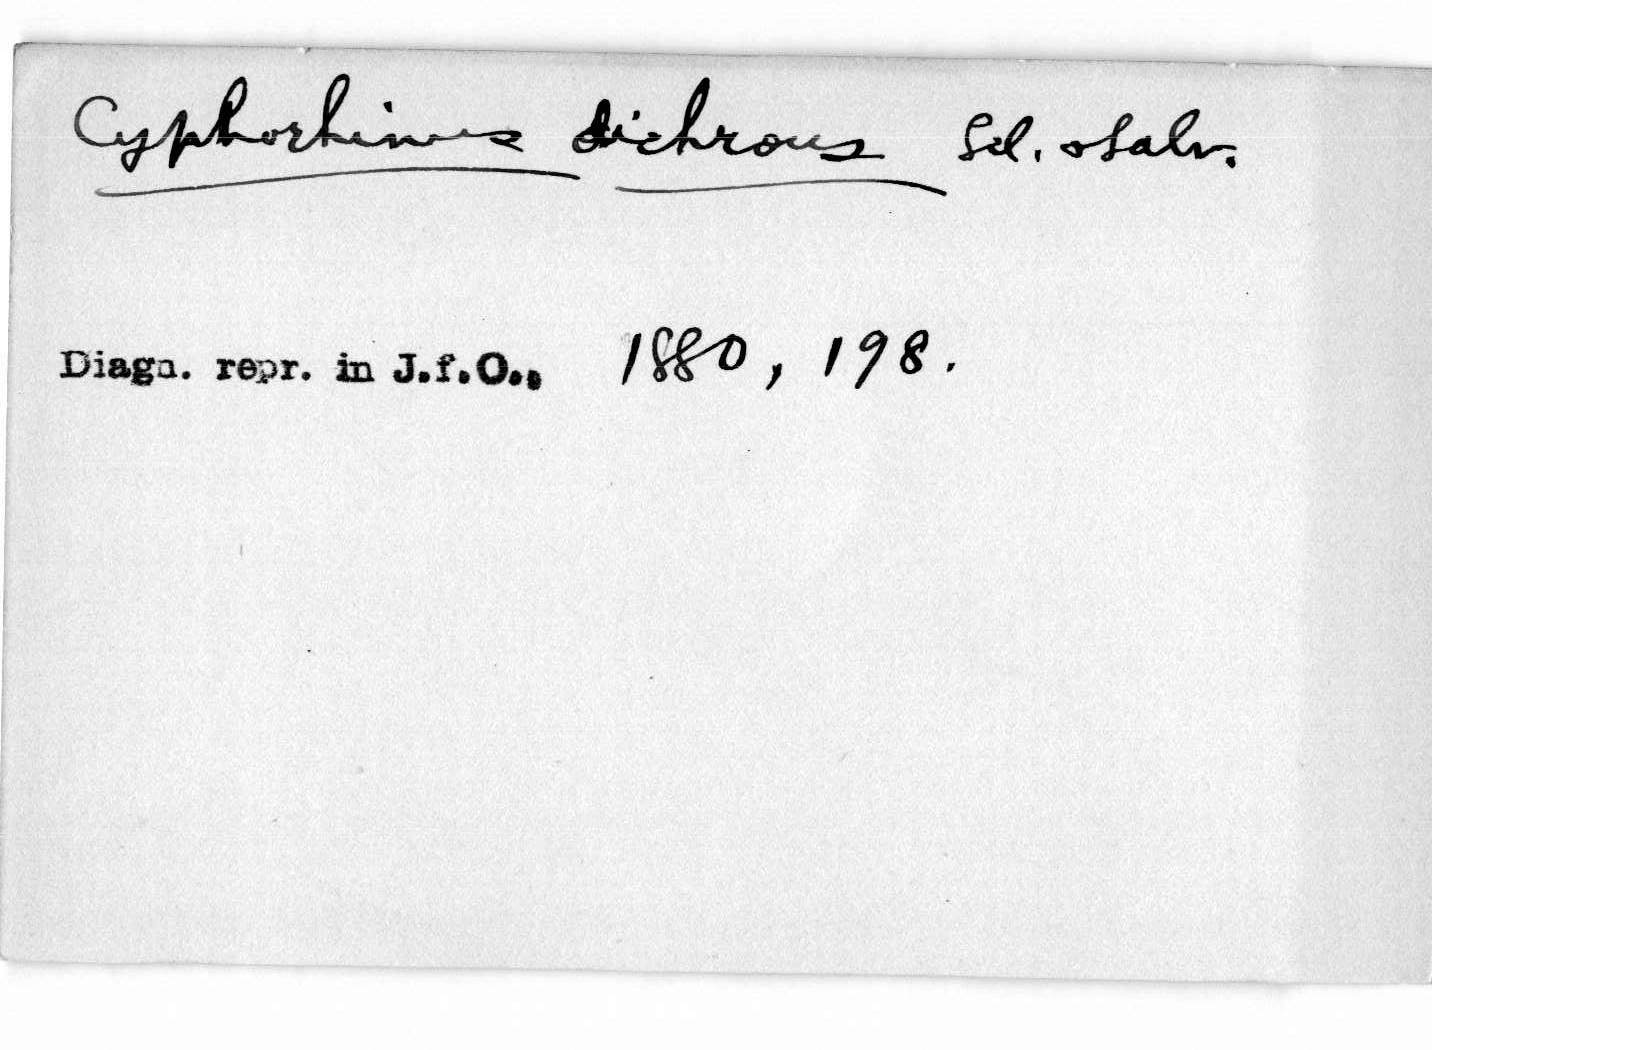 Cyphorhinus dichrous Scl. & Salv.
Diagn. repr. in J.f.O., 1880, 198.